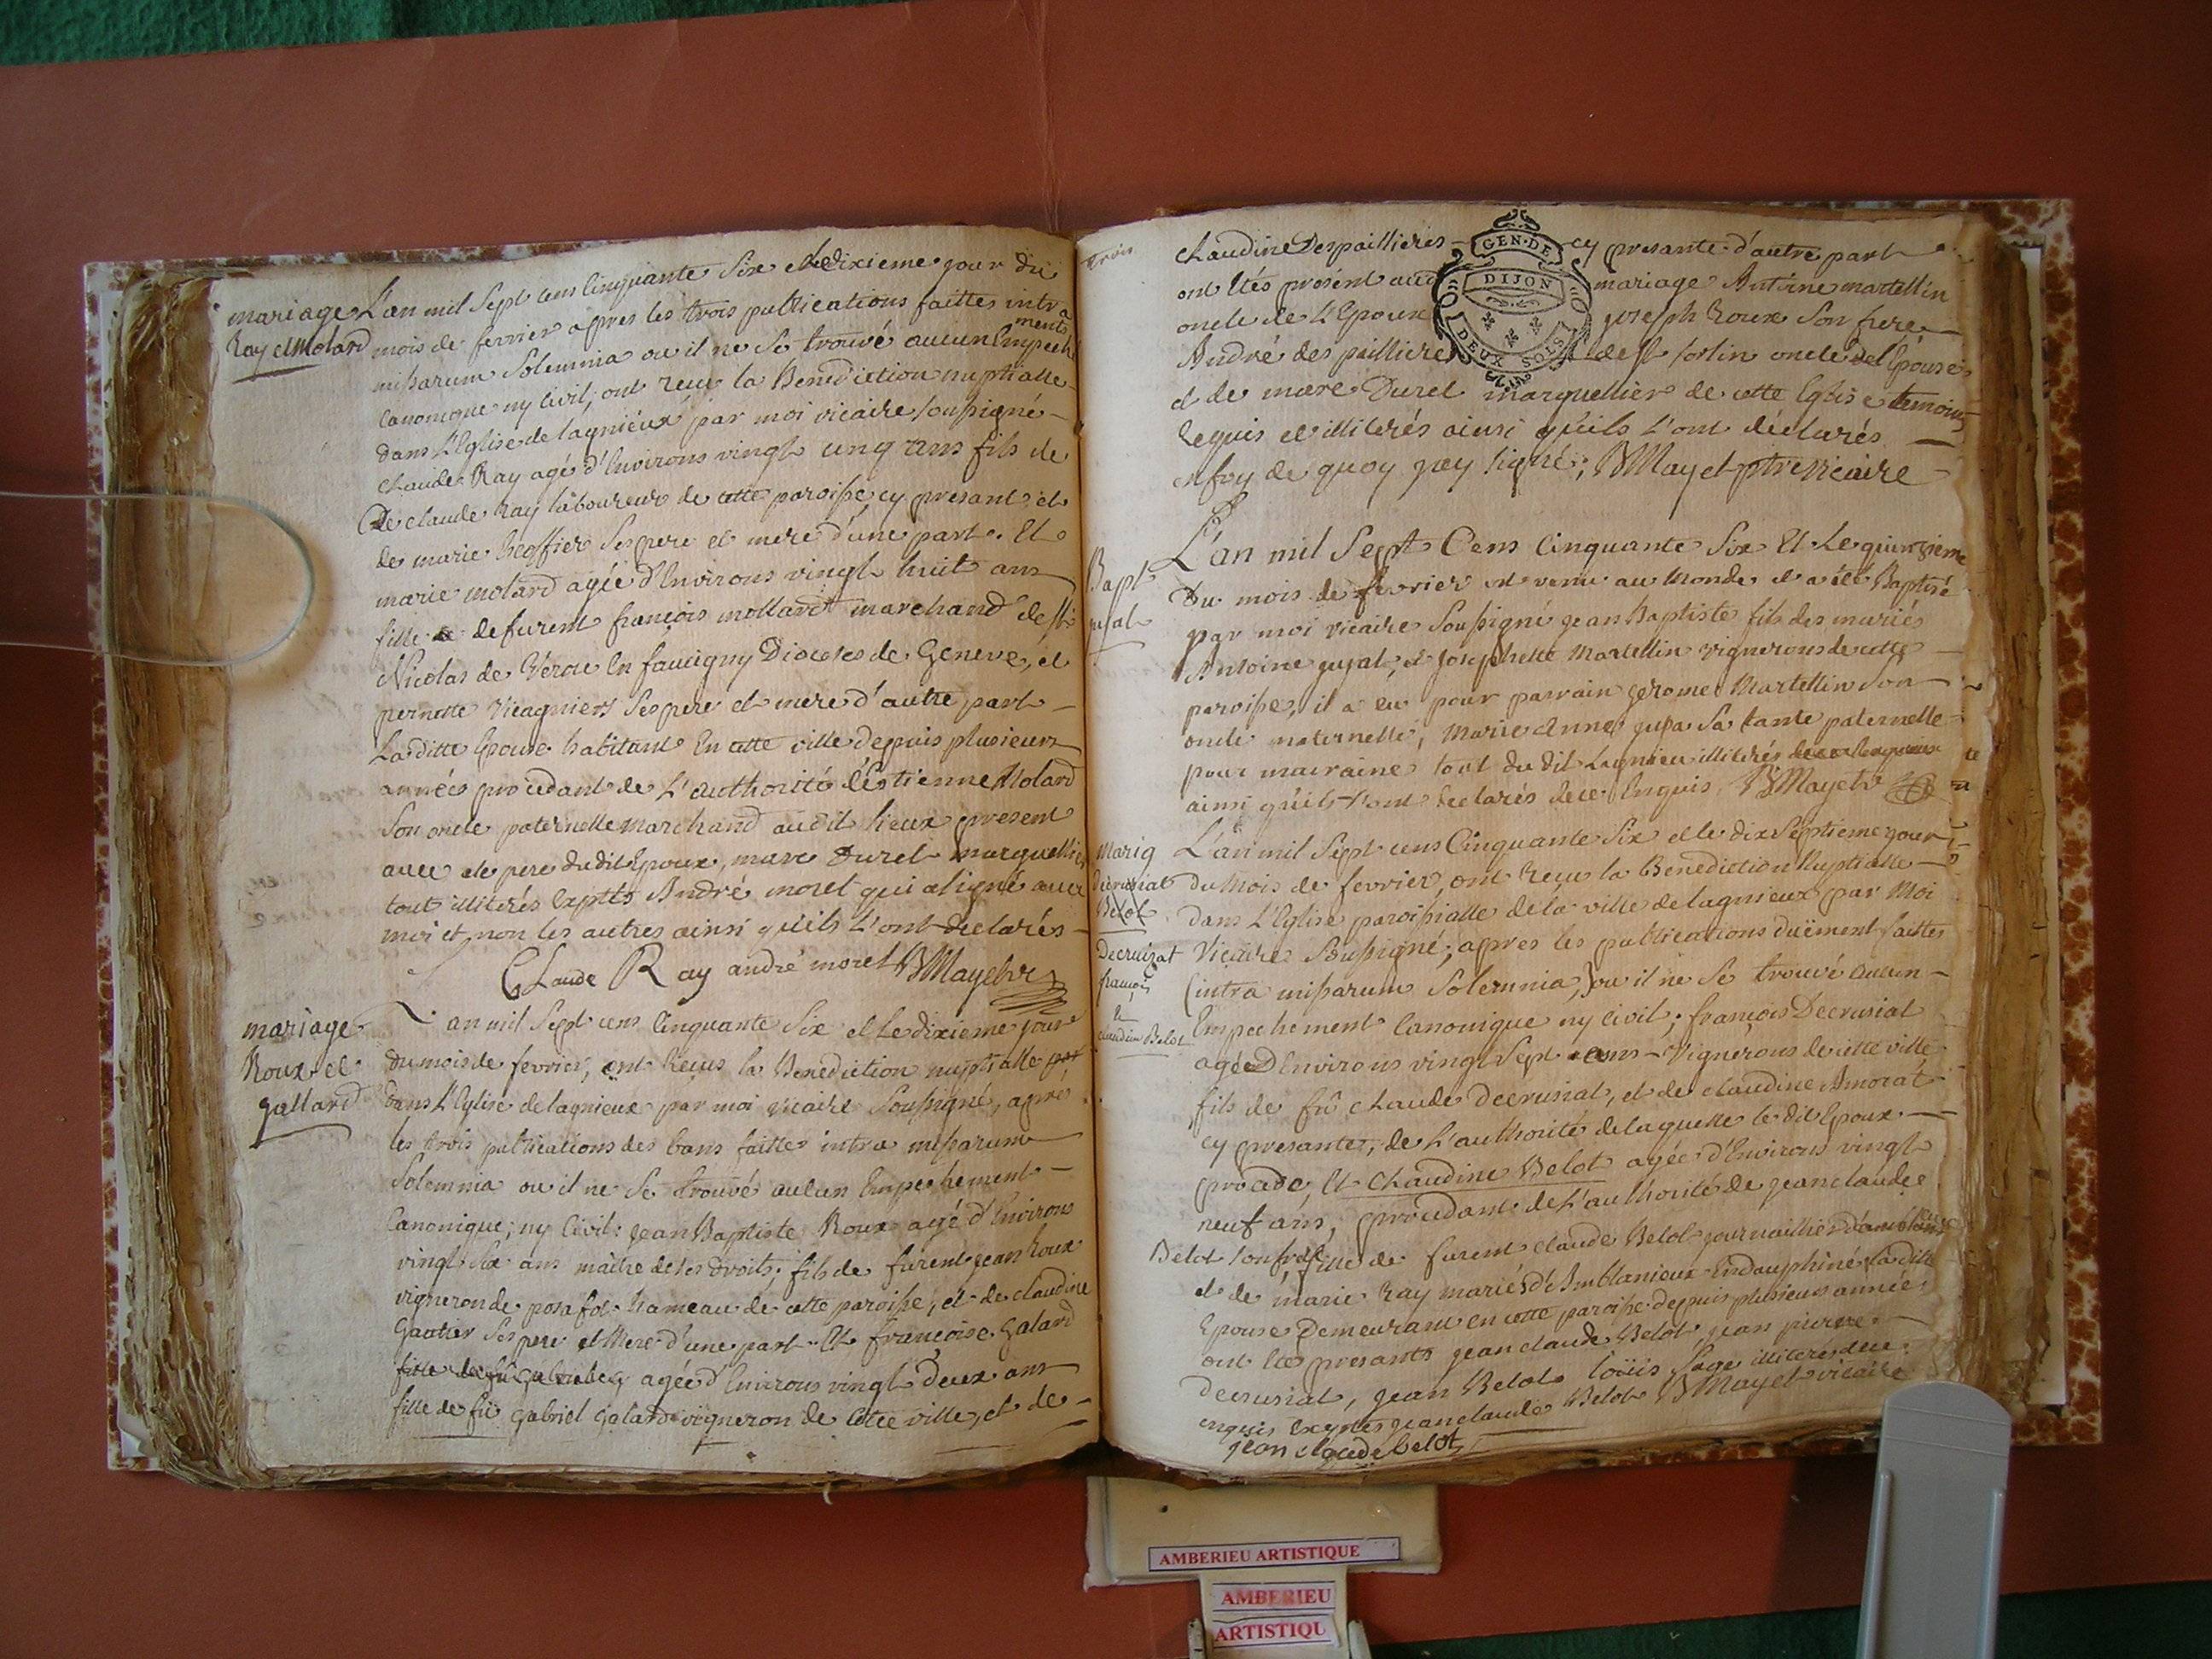 mariage
Ray et Molard
L'an mil Sept cens Cinquante Six et le dixieme jour du
mois de fevrier apres les trois publications faittes intra
missarum Solemnia ou il ne se trouvé aucun Empeche
ments
canonique ny civil, ont reçu la Benediction nuptialle
dans L'Eglise de lagnieux par moi vicaire soussigné
claude Ray agé d'Environs vingt cinq ans fils de
De claude Ray laboureur de cette paroisse cy present et
de marie Ses pere et mere d'une part. Et
marie molard agée d'Environs vingt huit ans
fille de defurent françois mollard marchand de St
Nicolas de Veroce En faucigny Diocese de Geneve, et
pernette Ses pere et mere d'autre part
Laditte Epouse habitant En cette ville depuis plusieurs
années procedant de L'authorité d'Estienne Molard
Son oncle paternelle marchand audit lieux present
avec et le pere dudit Epoux, marc Durel marguellier
tout illiterés Exptés André morel qui a signé avec
moi et non les autres ainsi qu'ils L'ont declarés
CLaude Ray andré morel BMayet vre
mariage
Roux et
gallard
L'an mil Sept cens Cinquante Six et Le dixieme jour
du mois de fevrier, ont Reçus la Benediction nuptialle par
dans L'Eglise de lagnieux par moi vicaire Soussigné, apré
les trois publications des bans faitte intra missarum
Solemnia ou il ne Se trouvé aucun Empechement
Canonique, ny Civil: jean Baptiste Roux agé d'Environs
vingt Six ans maitre de ses droits, fils de furent jean Roux
vigneron de posafol hameau de cette paroisse, et de claudine
Gautier Ses pere et Mere d'une part Et françoise Galard
agée d'Environs vingt deux ans
fille de fü Gabriel Galard vigneron de Cette ville, et de
trois
claudine Despaillieres cy presante d'autre part
GEN·DE
DIJON
DEUX SOLS
ont étés present aud mariage Antoine martellin
oncle de L'Epoux joseph Roux Son frere
André des paillieres de St sorlin oncle de l'Epouse
et de marc Durel marguellier de cette Eglise temoins
Requis et illiterés ainsi qu'ils L'ont déclarés
en foy de quoy j'ay signé; BMayet ptre vicaire
Bapt
L'an mil Sept Cens Cinquante Six Et Le quinzieme
Du mois de fevrier est venu au Monde et a été Baptisé
par moi vicaire Soussigné jean Baptiste fils des mariés
Antoine et Josephette Martellin vignerons de cette
paroisse, il a eu pour parrain gerome Martellin Son
oncle maternelle, Marie Anne Sa tante paternelle
pour marraine tout du dit Lagnieu illiterés
ainsi qu'ils L'ont declarés de ce Enquis BMayet
Mariag
Decrusiat
Belot
Decruizat
françois
&
claudine Belot
L'an mil Sept cens Cinquante Six et le dix Septieme jour
du Mois de fevrier, ont Reçu la Benediction Nuptialle
dans L'Eglise paroissialle de la ville de lagnieux par Moi
Vicaire Soussigné, apres les publications duëment faittes
(intra missarum Solemnia,) ou il ne Se trouvé aucun
Empechement Canonique ny civil, françois Decrusiat
agé D'Environs vingt Sept ans Vigneron de cette ville
fils de fü claude Decrusiat, et de claudine Amorat
cy presante, de L'authorité de laquelle le dit Epoux
procede, Et claudine Belot agée d'Environs vingt
neuf ans, procedant de L'authorité de jean claude
Belot son frere fille de furent claude Belot journaillier
et de marie Ray mariés d'Amblanieux En dauphiné la ditte
Epouse Demeurant en cette paroisse depuis plusieurs année
ont etés presants jean claude Belot, jean pierre
decrusiat, jean Belot loüis Sage illiterés de ce
enquis Exeptés jean claude Belot BMayet vicaire
jean claude belot
AMBERIEU ARTISTIQUE
AMBERIEU
ARTISTIQU